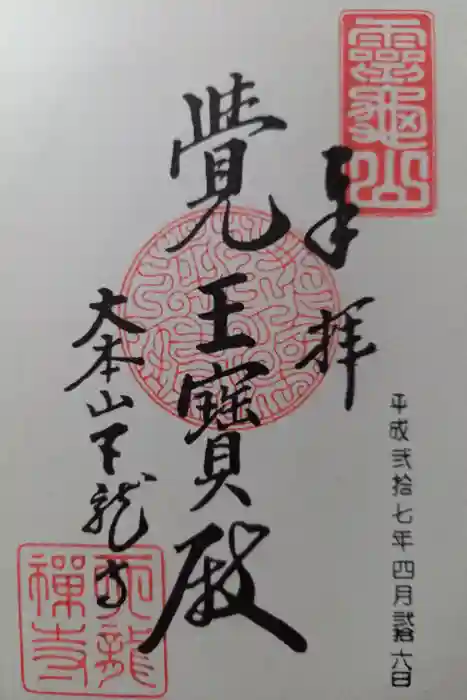 靈龜山
奉拝
平成弐拾七年四月弐拾六日
覺王寶殿
大本山天龍寺
天龍禅寺